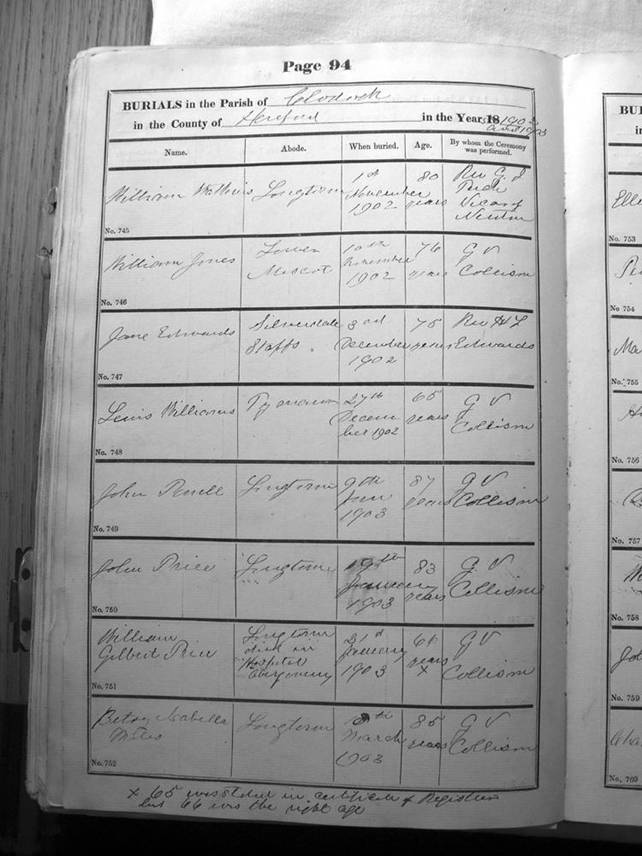 Page 94
BURIALS in the Parish of Clodock
in the County of Hereford in the Year 18 1902
and 1903
Name. Abode. When buried. Age. By whom the Ceremony was performed.
William Watkins Longtown 1st November 1902 80 years Rev G Vicar of Newton
No. 745
William Jones Lower 10th November 1902 76 years G V Collison
No. 746
Jane Edwards Silverdale Staffs. 3rd December 1902 75 years Rev Edwards
No. 747
Lewis Williams 27th December 1902 65 years G V Collison
No. 748
John Powell Longtown 9th 1903 87 years G V Collison
No. 749
John Price Longtown 19th January 1903 83 years G V Collison
No. 750
William Gilbert Price Longtown died in Hospital Abergavenny 21st January 1903 years x G V Collison
No. 751
Betsy Isabella Longtown March 1903 85 years G V Collison
No. 752
x 65 was stated in certificate of Registrar
but 66 was the right age
BU
in
Elle
No. 753
No. 754
Ma
No. 755
No. 756
No. 757
No. 758
Joh
No. 759
Cha
No. 760